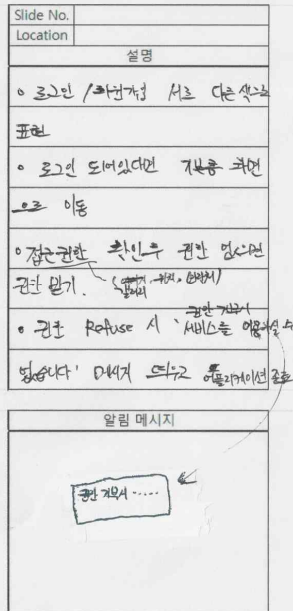 Slide No.
Location
설명
• 로그인 / 회원가입 서로 다른 색으로
표현
• 로그인 되어있다면 기본 화면
으로 이동
• 접근권한 확인후 권한 없으면
권한 받기. ( 위치, )
갤러리
• 권한 Refuse 시 '권한 거부시
서비스를 이용하실 수
없습니다' 메시지 띄우고 어플리케이션 종료
알림 메시지
권한 거부시 .....